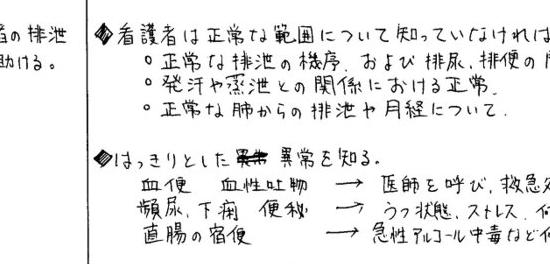 者の排泄
助ける。
◆看護者は正常な範囲について知っていなければ
○正常な排泄の機序、および排尿、排便の
○発汗や蒸泄との関係における正常。
○正常な肺からの排泄や月経について。
◆はっきりとした 異常を知る。
血便 血性吐物 → 医師を呼び、救急
頻尿、下痢 便秘 → うつ状態、ストレス、
直腸の宿便 → 急性アルコール中毒など